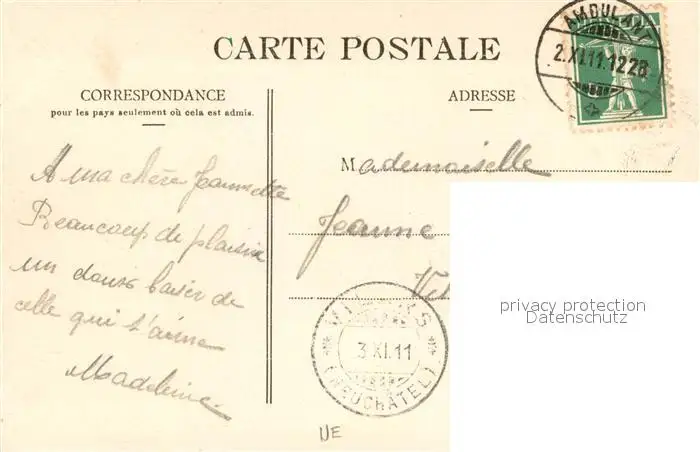 CARTE POSTALE
AMBULANT
2.XI.11.12
CORRESPONDANCE
pour les pays seulement où cela est admis.
ADRESSE
Mademoiselle
Jeanne
A ma chère Jeannette
Beaucoup de plaisir
un doux baiser de
celle qui t'aime
Madeleine
3 XI.11
(NEUCHÂTEL)
privacy protection
Datenschutz
NE